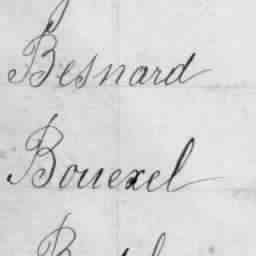 Besnard
Bouexel